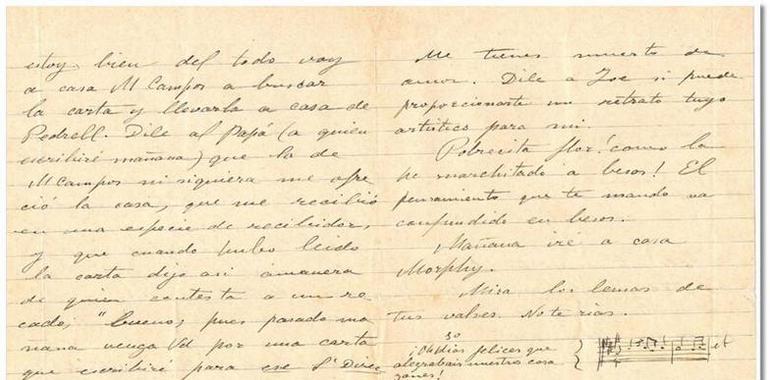 estoy bien del todo voy
a casa M Campos a buscar
la carta y llevarla a casa de
Pedrell. Dile al Papá (a quien
escribiré mañana) que la de
M Campos ni siquiera me ofre
ció la casa, que me recibió
en una especie de recibidor,
y que cuando hubo leido
la carta dijo asi á manera
de quien contesta a un re
cado; "bueno, pues pasado ma
ñana venga Vd por una carta
que escribiré para ese Sr Direc
Me tienes muerto de
amor. Dile a Zoe si puede
proporcionarte un retrato tuyo
artístico para mi.
Pobrecita flor! como la
he marchitado a besos! El
pensamiento que te mando va
confundido en besos.
Mañana iré a casa
Morphy.
Mira los lemas de
tus valses. No te rias.
3o
¡Oh dias felices que
alegrabais nuestros cora
zones!